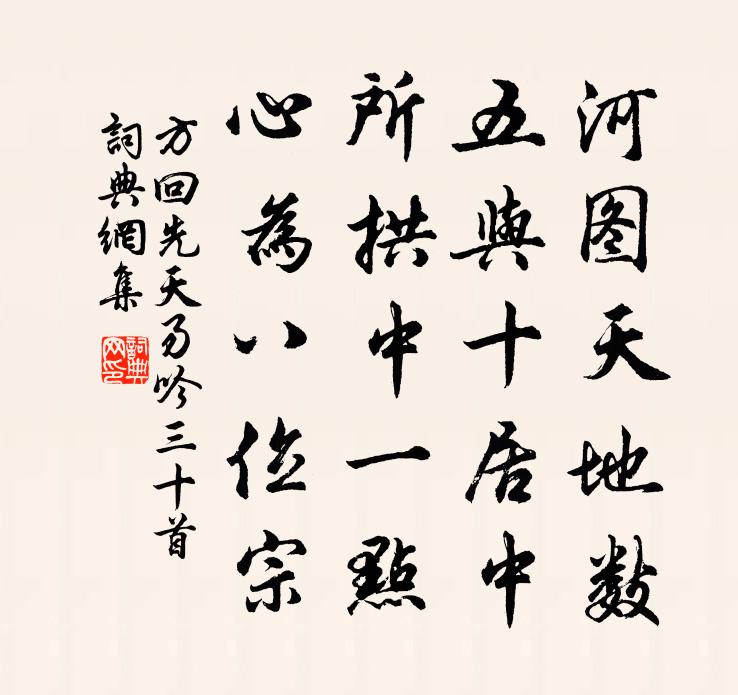 河图天地数
五與十居中
所拱中一點
心為八位宗
方回先天易吟三十首
詞典網集
詞典网印